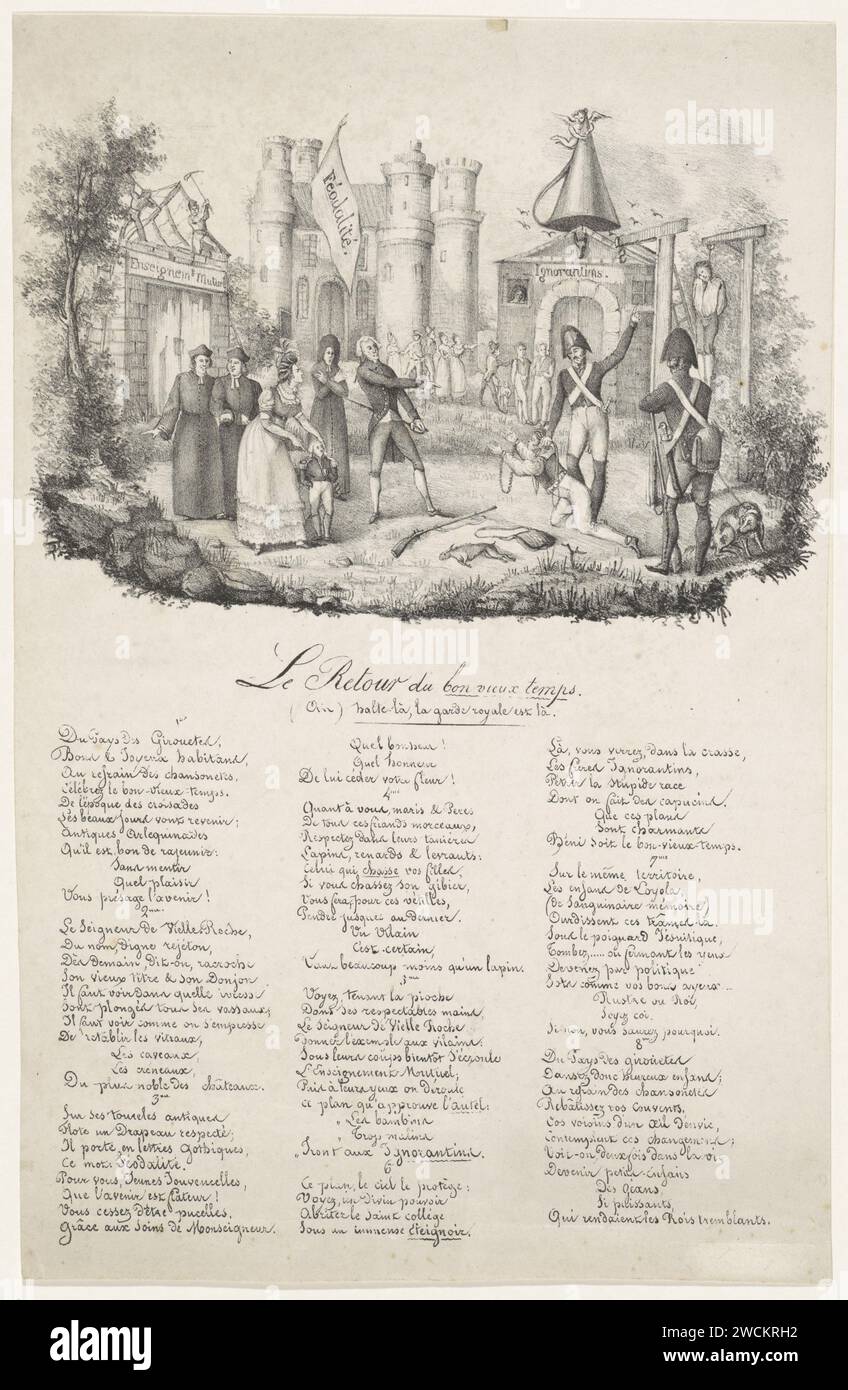 alamy
Féodalité.
Enseignem.t Mutuel
Ignorantins.
Le Retour du bon vieux temps.
(Air) halte-là, la garde royale est là.
1er
Du Pays des Girouettes,
Bons & Joyeux habitans,
Au refrain des chansonetes,
Célébrez le bon-vieux-temps.
De l'époque des croisades
Les beaux jours vont revenir;
Antiques Arlequinades
Qu'il est bon de rajeunir:
Sans mentir
Quel plaisir
Vous présage l'avenir!
2eme
Le Seigneur de Vielle Roche,
Du nom, digne rejéton,
Dès Demain, dit-on, racroche
Son vieux titre & son Donjon
Il faut voir dans quelle ivresse
Sont plongés tous ses vassaux;
Il faut voir comme on s'empresse
De rétablir les vitraux,
Les caveaux,
Les créneaux,
Du plus noble des châteaux.
3eme
Sur ses tourelles antiques
Flote un Drapeau respecté;
Il porte, en lettres Gothiques,
Ce mot: Féodalité.
Pour vous, Jeunes Jouvencelles,
Que l'avenir est flateur!
Vous cessez d'être pucelles,
Grâce aux soins de Monseigneur.
Quel bonheur!
Quel honneur
De lui céder votre fleur!
4eme
Quant à vous, maris & Peres
De tous ces friands morceaux,
Respectez dans leurs tanieres
Lapins, renards & levrauts:
Celui qui chasse vos filles,
Si vous chassez son gibier,
Vous fera, pour ces vétilles,
Pendre jusques au dernier.
Un Vilain
C'est certain
Vaut beaucoup moins qu'un lapin.
5eme
Voyez, tenant la pioche
Dans ses respectables mains,
Le Seigneur de Vielle Roche
Donner l'exemple aux vilains:
Sous leurs coups bientôt s'écroule
L'Enseignement Mutuel;
Puis à leurs yeux on déroule
Ce plan qu'approuve l'autel:
"Les bambins
"Trop malins
"Iront aux Ignorantins.
6
Ce plan, le ciel le protège:
Voyez, un Divin pouvoir
Abritez le Saint collége
Sous un immense éteignoir.
Là, vous verrez, dans la crasse,
Les frères Ignorantins,
Petrir la stupide race
Dont on fait des capucins.
Que ces plans
Sont charmants
Béni soit le bon-vieux-temps.
7eme
Sur le même territoire,
Les enfans de Loyola,
(de Sanguinaire mémoire)
Ourdissent ces trames-là.
Sous le poignard Jésuitique,
Tombez,.... ou fermant les yeux
Devenez par politique
Sots comme vos bons ayeux...
Rustre ou Roi,
Soyez coi.
Si non, vous saurez pourquoi.
8eme
Du Pays des girouettes
Dansez donc heureux enfans;
Au refrain des chansonetes
Rebâtissez vos couvents,
Vos voisins d'un œil d'envie,
Contemplent ces changemens;
Voit-on deux fois dans la vie
Devenir petits enfans
Des géans,
Si puissants,
Qui rendaient les Rois tremblants.
alamy
Image ID: 2WCKRH2
www.alamy.com